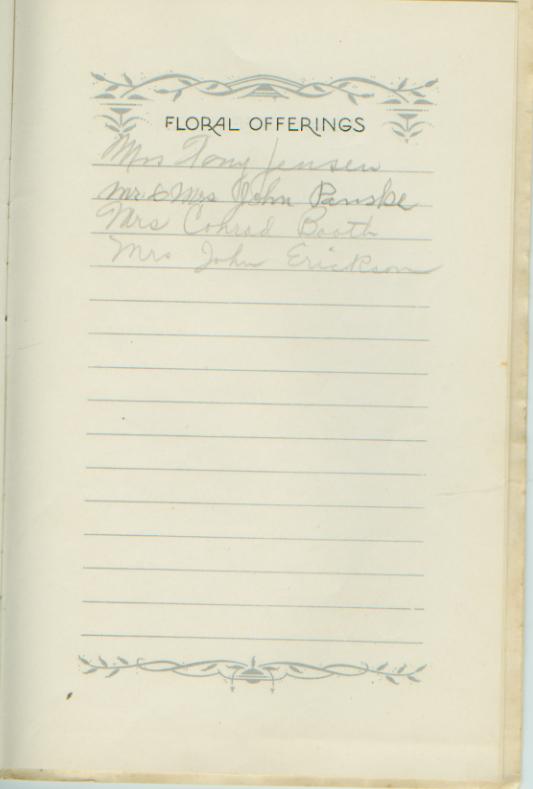 FLORAL OFFERINGS
Mrs Tony Jensen
Mr & Mrs John Panske
Mrs Conrad Booth
Mrs John Erickson